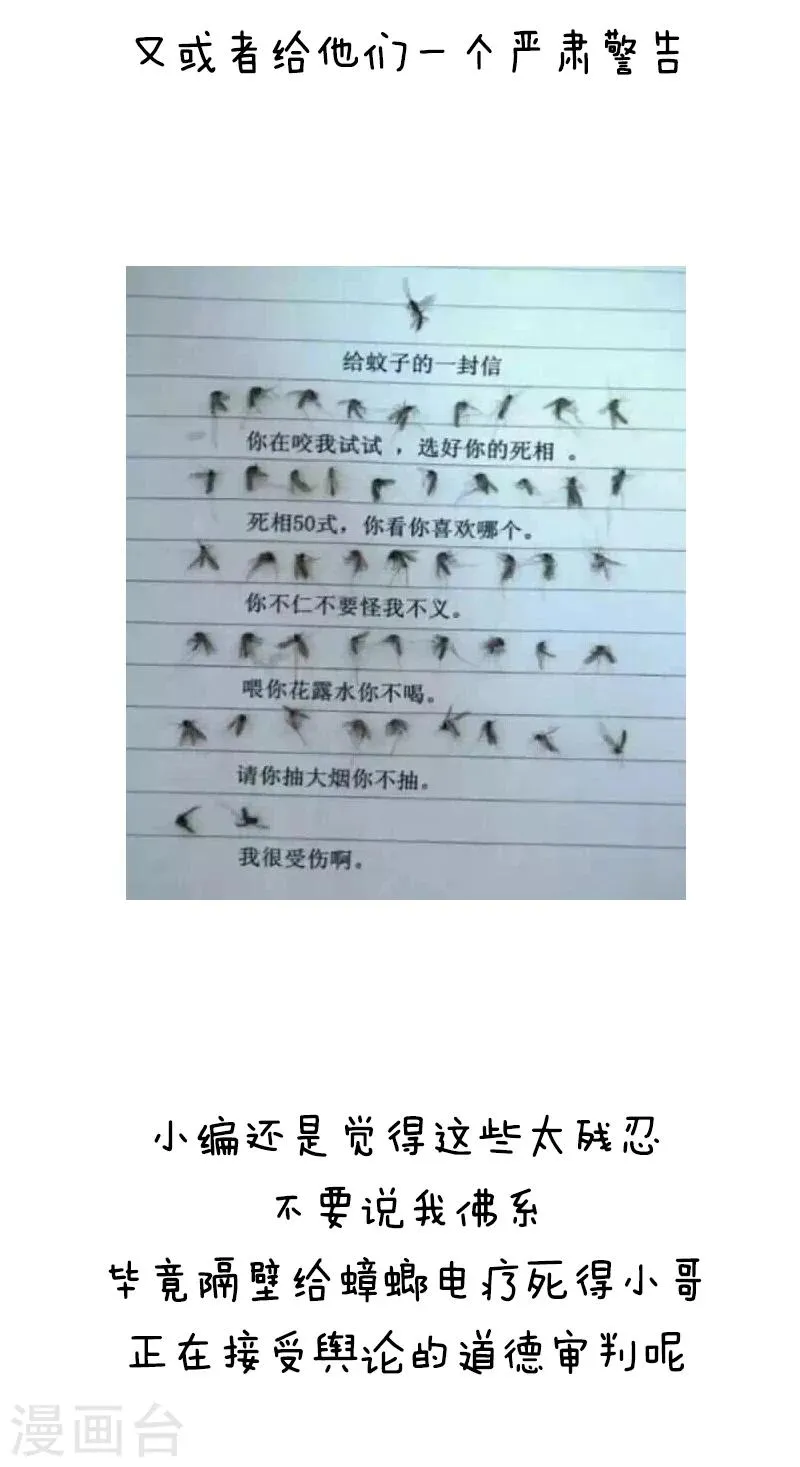 又或者给他们一个严肃警告
给蚊子的一封信
你在咬我试试 ，选好你的死相 。
死相50式，你看你喜欢哪个。
你不仁不要怪我不义。
喂你花露水你不喝。
请你抽大烟你不抽。
我很受伤啊。
小编还是觉得这些太残忍
不要说我佛系
毕竟隔壁给蟑螂电疗死得小哥
正在接受舆论的道德审判呢
漫画台